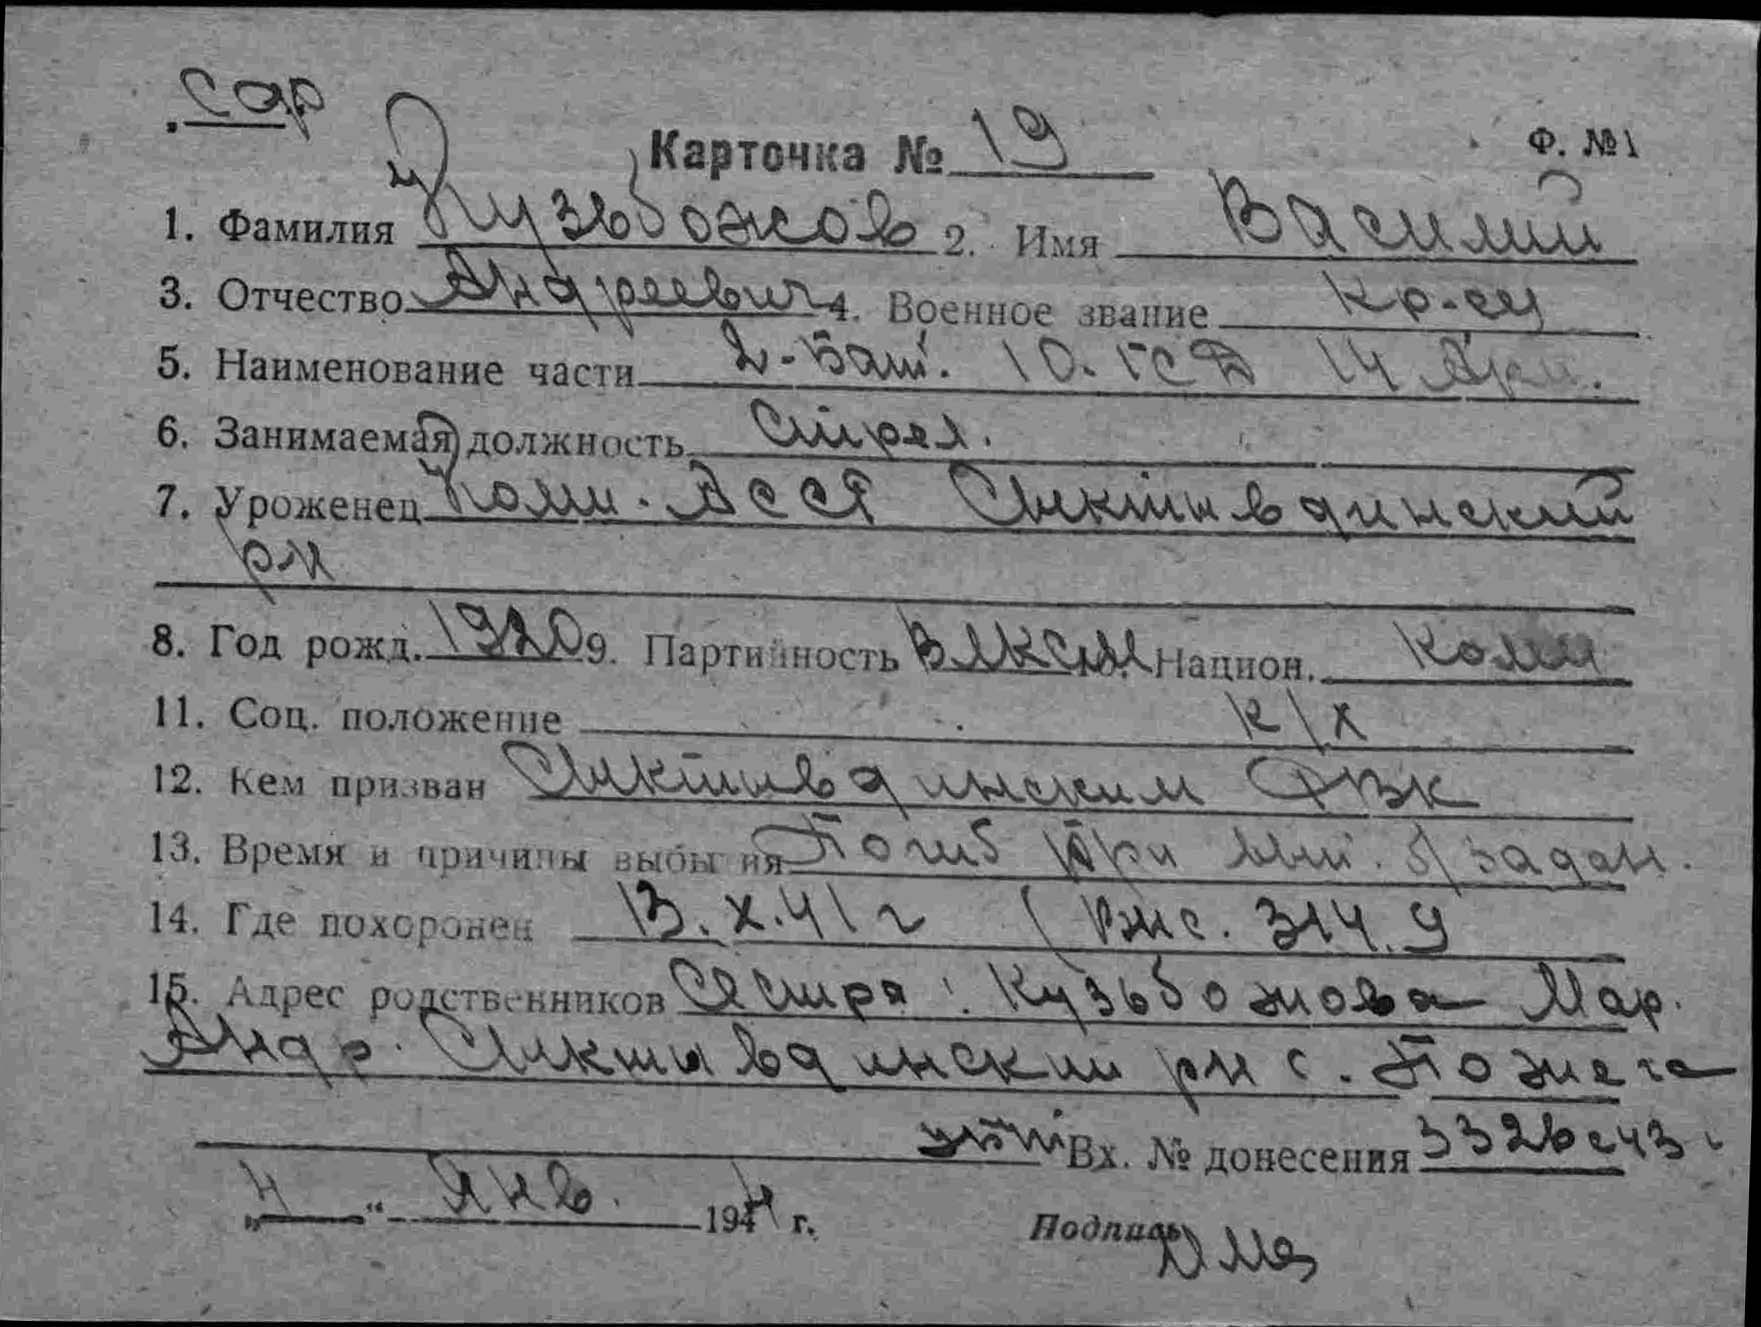 сар
Карточка № 19 Ф. №1
1. Фамилия Кузьбожов 2. Имя Василий
3. Отчество Андреевич 4. Военное звание кр-ец
5. Наименование части 2-Бат. 10. ГСД 14 Арм.
6. Занимаемая должность Стрел.
7. Уроженец Коми-АССР Сыктывдинский
рн
8. Год рожд. 1920 9. Партийность ВЛКСМ 10. Национ. Коми
11. Соц. положение к/х
12. Кем призван Сыктывдинским РВК
13. Время и причины выбытия Погиб при вып. б/задан.
14. Где похоронен 13.X.41 г (Выс. 314.9
15. Адрес родственников Сестра: Кузьбожова Мар.
Андр. Сыктывдинский рн с. Пожега
Вх. № донесения 3326с43г
„4“ Янв. 1944 г. Подпись